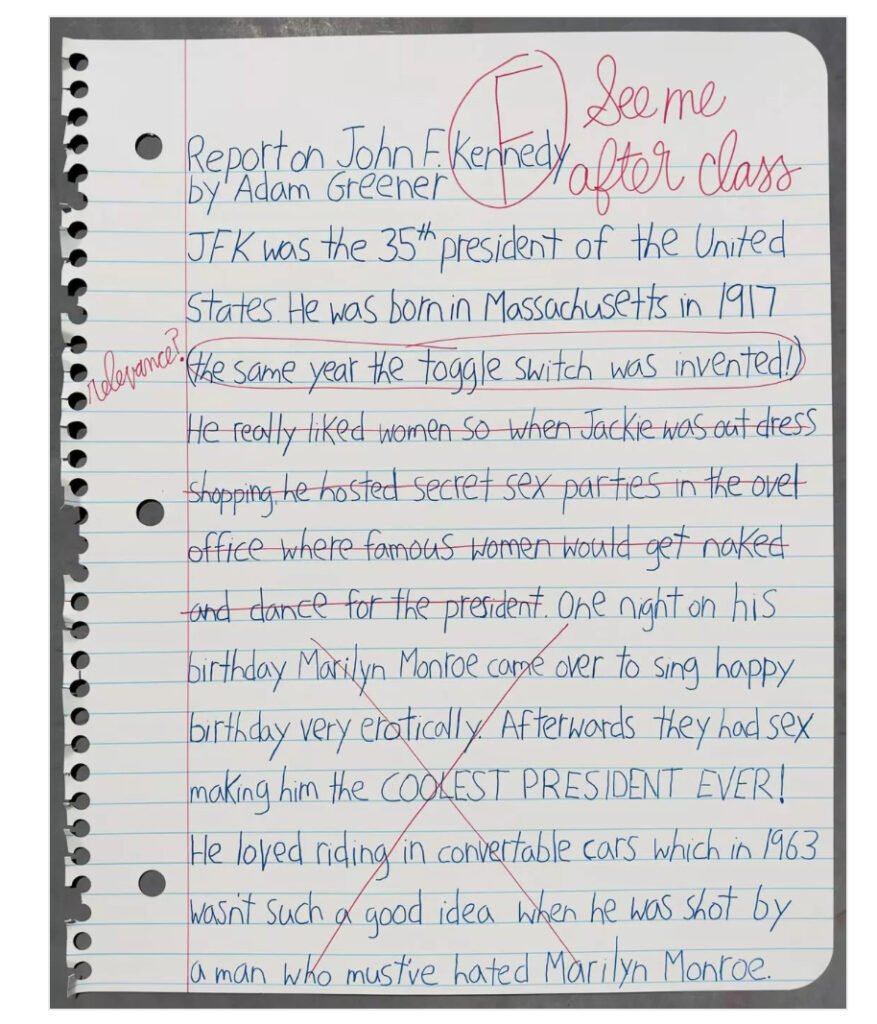 F
See me
after class
Report on John F. Kennedy
by Adam Greener
JFK was the 35th president of the United
States. He was born in Massachusetts in 1917
relevance?
(the same year the toggle switch was invented!)
He really liked women so when Jackie was out dress
shopping, he hosted secret sex parties in the ovel
office where famous women would get naked
and dance for the president. One night on his
birthday Marilyn Monroe came over to sing happy
birthday very erotically. Afterwards they had sex
making him the COOLEST PRESIDENT EVER!
He loved riding in convertable cars which in 1963
wasn't such a good idea when he was shot by
a man who must've hated Marilyn Monroe.